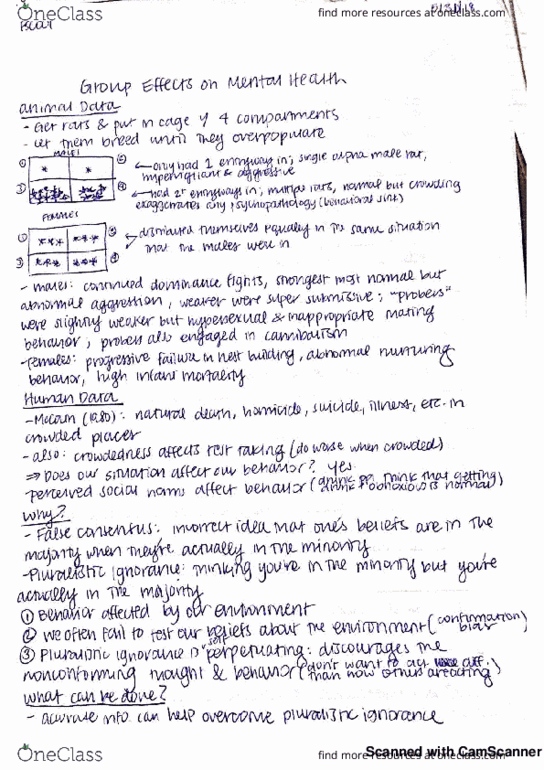 OneClass
find more resources at oneclass.com
Group Effects on Mental Health
animal Data
- Get rats & put in cage of 4 compartments
- Let them breed until they overpopulate
MALES
① ② ← only had 1 entryway in; single alpha male rat, hypervigilant & aggressive
③ ④ ← had 2+ entryways in; multiple rats, normal but crowding
exaggerates any psychopathology (behavioral sink)
FEMALES
① ② ← distributed themselves equally in the same situation
③ ④ that the males were in
- males: continued dominance fights, strongest most normal but
abnormal aggression, weaker were super submissive; "probers"
were slightly weaker but hypersexual & inappropriate mating
behavior, probers also engaged in cannibalism
- females: progressive failure in nest building, abnormal nurturing
behavior, high infant mortality
Human Data
- McCain (1980): natural death, homicide, suicide, illness, etc. in
crowded places
- also: crowdedness affects test taking (do worse when crowded)
⇒ Does our situation affect our behavior? yes
- perceived social norms affect behavior ( think that getting
drunk + obnoxious is normal)
why?
- False consensus: incorrect idea that one's beliefs are in the
majority when they're actually in the minority
- Pluralistic ignorance: thinking you're in the minority but you're
actually in the majority
① Behavior affected by our environment
② we often fail to test our beliefs about the environment (confirmation bias)
③ Pluralistic ignorance is self perpetuating: discourages the
nonconforming thought & behavior (don't want to act diff.
than how others are acting)
what can be done?
- accurate info can help overcome pluralistic ignorance
OneClass
find more resources at oneclass.com
Scanned with CamScanner